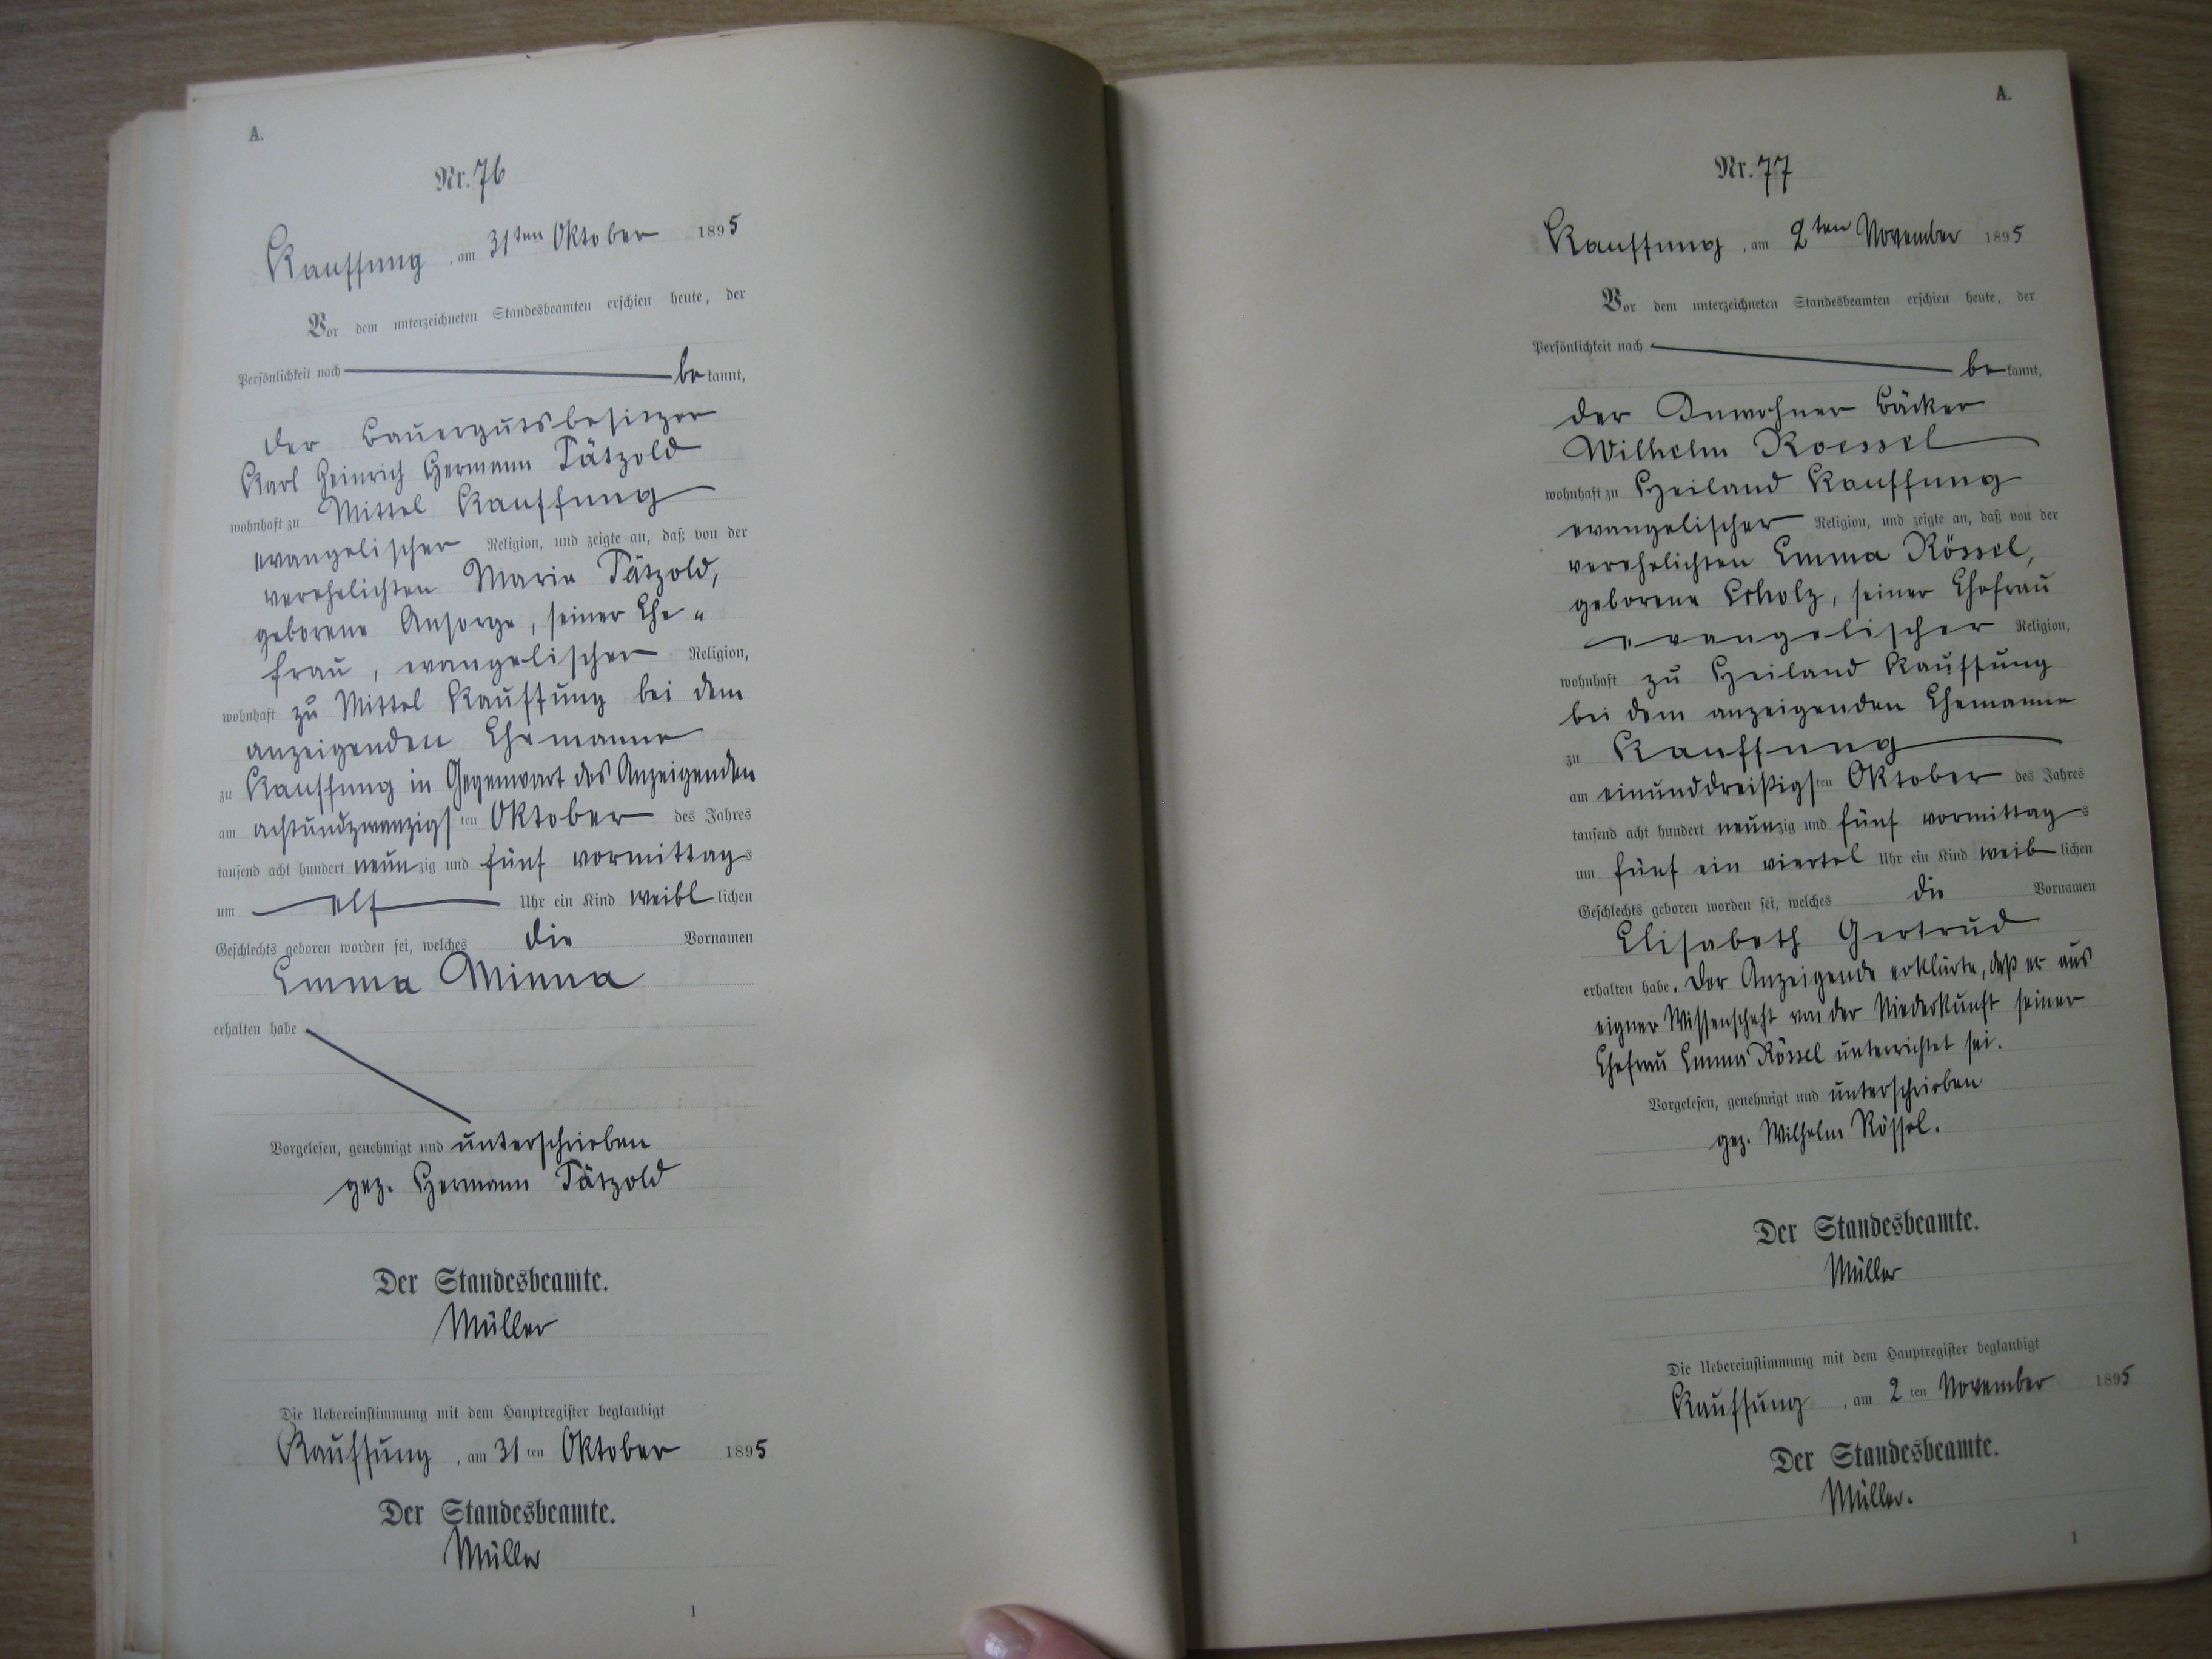 A.
Nr. 76
Kauffung, am 31ten Oktober 1895
Vor dem unterzeichneten Standesbeamten erschien heute, der
Persönlichkeit nach be kannt,
der Bauergutsbesitzer
Karl Heinrich Hermann Pätzold
wohnhaft zu Mittel Kauffung
evangelischer Religion, und zeigte an, daß von der
verehelichten Marie Pätzold,
geborene Ansorge, seiner Ehe-
frau, evangelischer Religion,
wohnhaft zu Mittel Kauffung bei dem
anzeigenden Ehemanne
zu Kauffung in Gegenwart des Anzeigenden
am achtundzwanzigsten Oktober des Jahres
tausend acht hundert neunzig und fünf vormittags
um elf Uhr ein Kind weiblichen
Geschlechts geboren worden sei, welches die Vornamen
Emma Minna
erhalten habe
Vorgelesen, genehmigt und unterschrieben
gez. Hermann Pätzold
Der Standesbeamte.
Müller
Die Uebereinstimmung mit dem Hauptregister beglaubigt
Kauffung, am 31ten Oktober 1895
Der Standesbeamte.
Müller
1
A.
Nr. 77
Kauffung, am 2ten November 1895
Vor dem unterzeichneten Standesbeamten erschien heute, der
Persönlichkeit nach be kannt,
der Inwohner Bäcker
Wilhelm Roessel
wohnhaft zu Heiland Kauffung
evangelischer Religion, und zeigte an, daß von der
verehelichten Emma Rössel,
geborene seiner Ehefrau
evangelischer Religion,
wohnhaft zu Heiland Kauffung
bei dem anzeigenden Ehemanne
zu Kauffung
am einunddreißigsten Oktober des Jahres
tausend acht hundert neunzig und fünf vormittags
um fünf ein viertel Uhr ein Kind weiblichen
Geschlechts geboren worden sei, welches die Vornamen
Elisabeth Gertrud
erhalten habe. Der Anzeigende erklärte, daß er aus
eigner Wissenschaft von der Niederkunft seiner
Ehefrau Emma Rössel unterrichtet sei.
Vorgelesen, genehmigt und unterschrieben
gez. Wilhelm Rössel.
Der Standesbeamte.
Müller
Die Uebereinstimmung mit dem Hauptregister beglaubigt
Kauffung, am 2ten November 1895
Der Standesbeamte.
Müller.
1